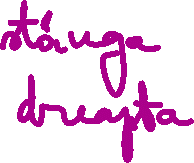 stánga
dreapta